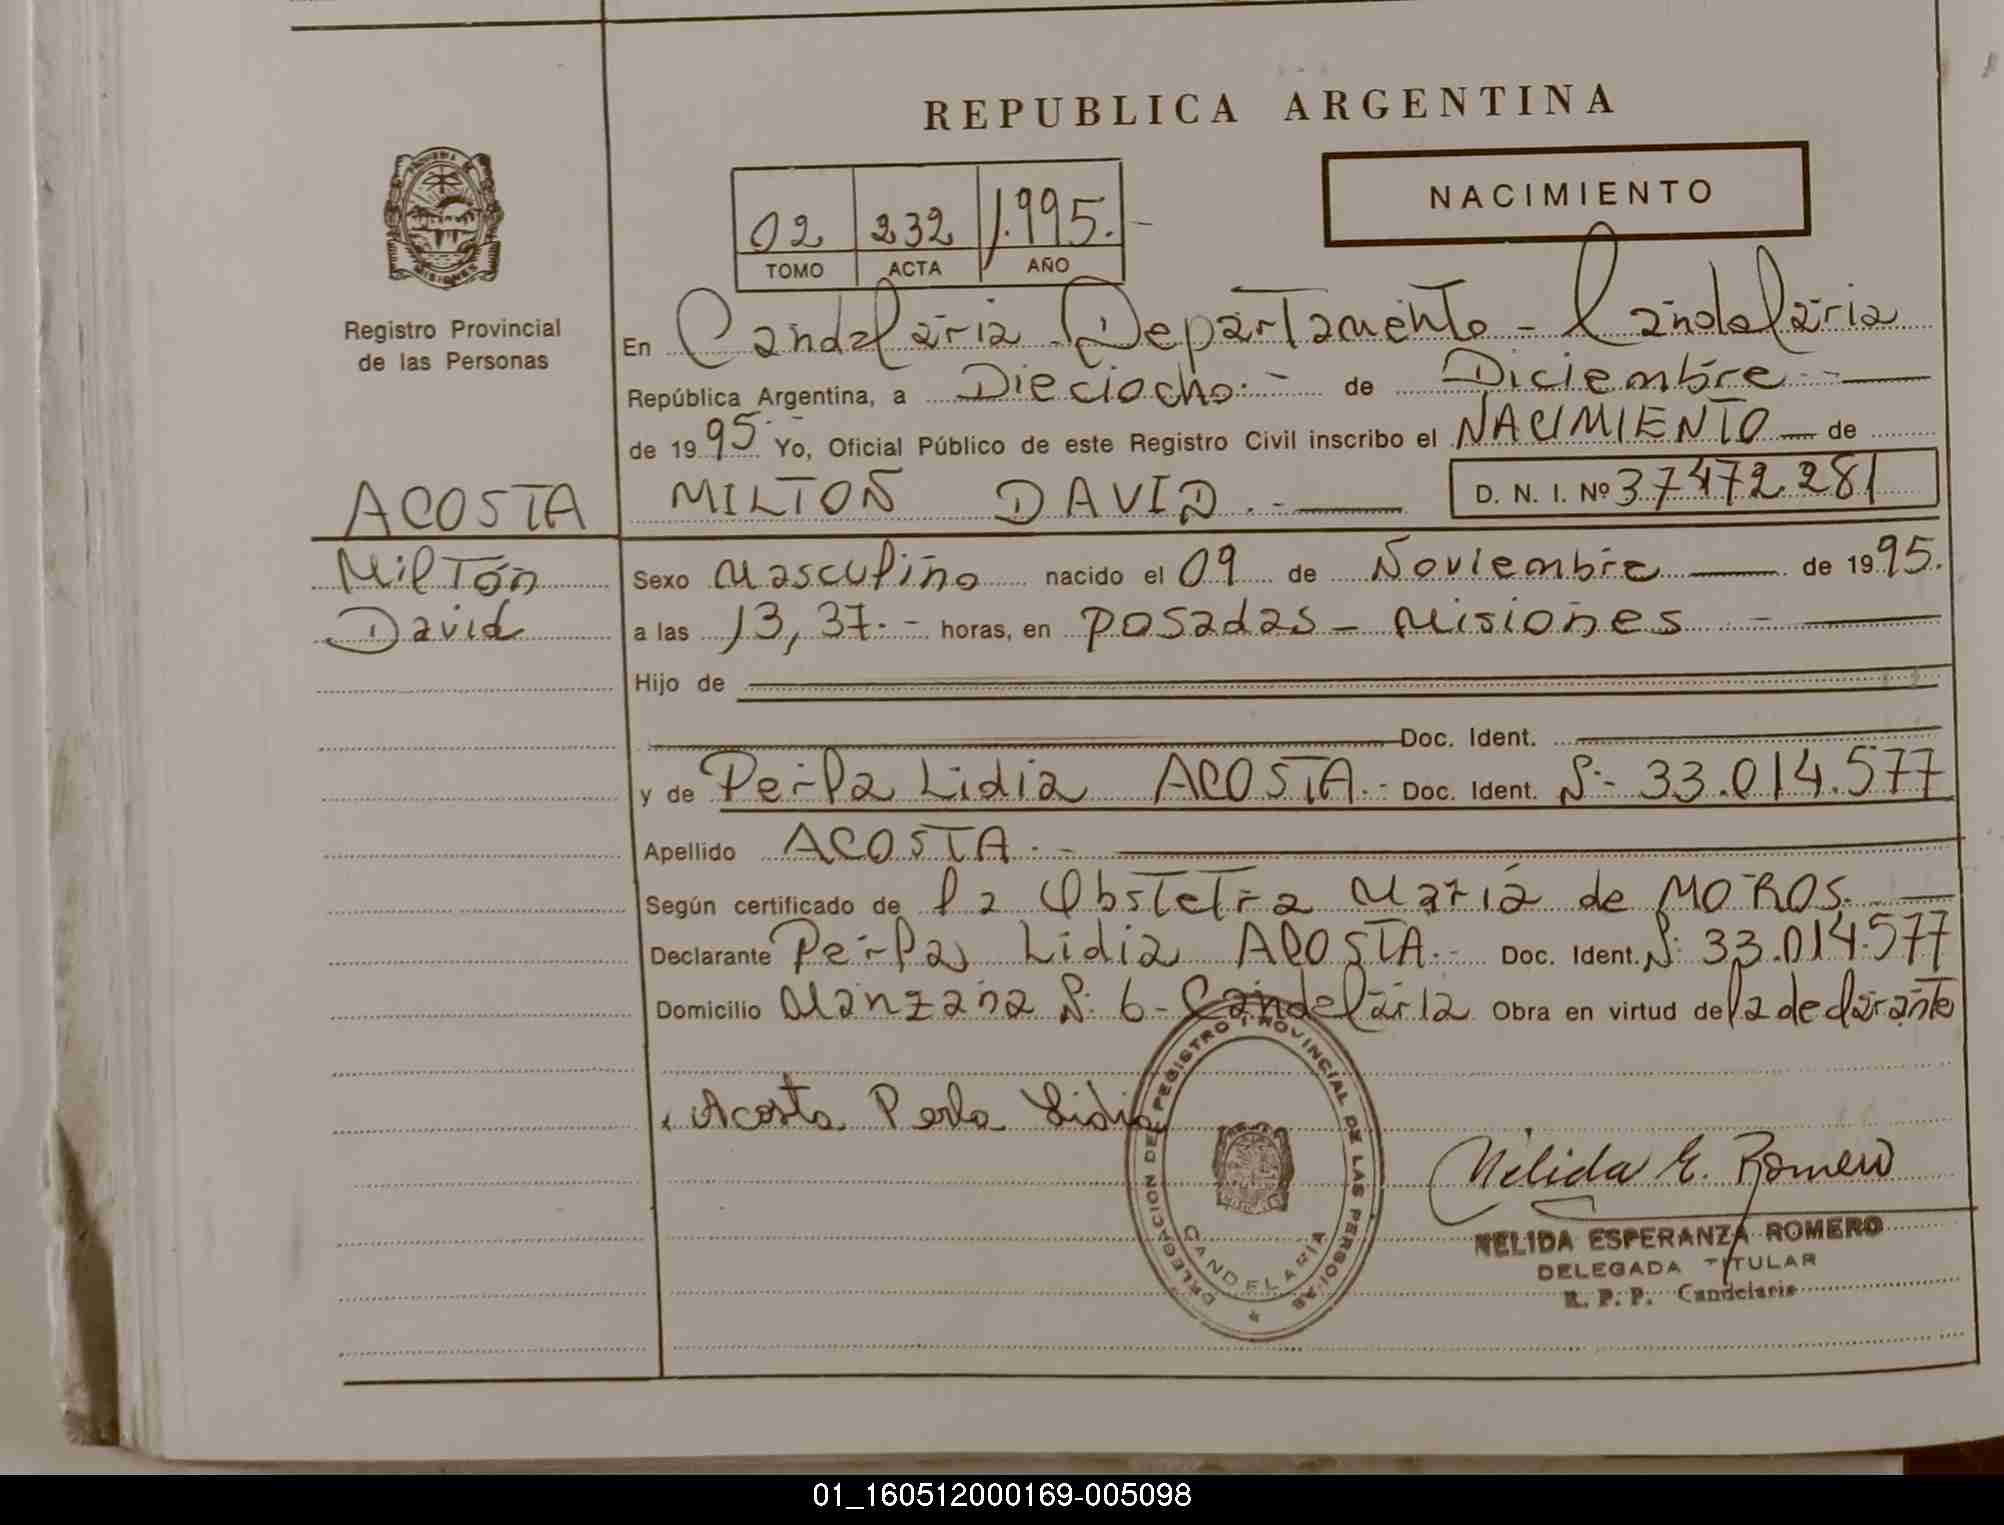 REPUBLICA ARGENTINA
NACIMIENTO
02 232 1.995.-
TOMO ACTA AÑO
Registro Provincial
de las Personas
En Candelaria Departamento - Candelaria
República Argentina, a Dieciocho.- de Diciembre.-
de 1995 Yo, Oficial Público de este Registro Civil inscribo el NACIMIENTO de
ACOSTA MILTON DAVID.- D. N. I. Nº 37472281
Milton
David
Sexo Masculino nacido el 09 de Noviembre de 1995.
a las 13,37.- horas, en Posadas - Misiones -
Hijo de
Doc. Ident.
y de Perla Lidia ACOSTA.- Doc. Ident. N:- 33.014.577
Apellido ACOSTA.-
Según certificado de la Obstetra María de MOROS.
Declarante Perla Lidia ACOSTA.- Doc. Ident. N: 33.014.577
Domicilio Manzana N: 6 - Candelaria Obra en virtud de la declarante
Acosta Perla Lidia
DELEGACION DEL REGISTRO PROVINCIAL DE LAS PERSONAS
CANDELARIA
Nélida E. Romero
NELIDA ESPERANZA ROMERO
DELEGADA TITULAR
R. P. P. Candelaria
01_160512000169-005098